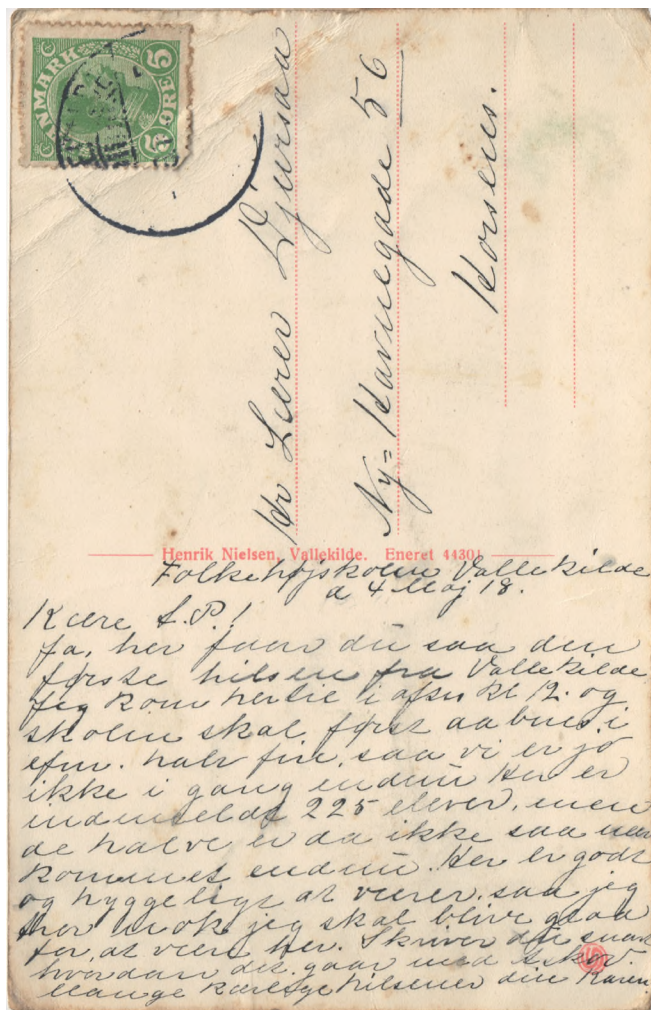 DANMARK
5 ØRE 5
Hr Lærer Djursaa
Ny=Havnegade 56
Horsens.
Henrik Nielsen, Vallekilde. Eneret 44301
Folkehøjskolen Vallekilde
d 4 Maj 18.
Kære S.P.!
Ja, her faar du saa den
første hilsen fra Vallekilde
Jeg kom hertil i kl 12. og
skolen skal først aabnes i
efm. halv fire, saa vi er jo
ikke i gang endnu Her er
indmeldt 225 elever, men
de halve er da ikke saa
kommet endnu. Her er godt
og hyggeligt at være, saa jeg
tror nok jeg skal blive glad
for, at være her. Skriver du snart
hvordan det gaar med
Mange kærlige hilsener din Karen.